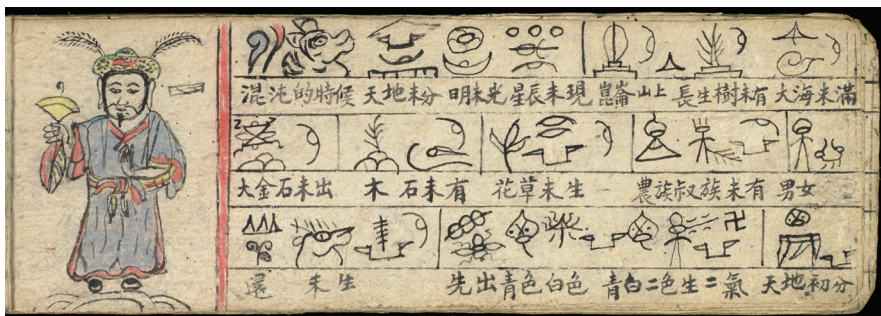 混沌的時候 天地未分 明未光 星辰未現 崑崙山上 長生樹未有 大海未滿
大金石未出 木石未有 花草未生 農族叔族未有 男女
還未生 先出青色白色 青白二色生二氣 天地初分